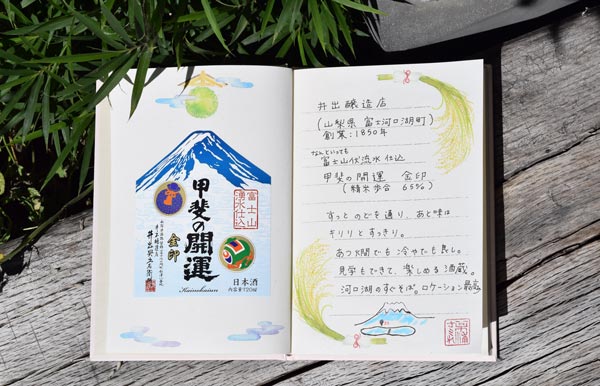 甲斐の開運
金印
富士山
湧水仕込
日本酒
内容量720ml
Kainokaiun
井出醸造店
(山梨県 富士河口湖町)
創業:1850年
なんといっても
富士山伏流水仕込
甲斐の開運 金印
(精米歩合 65%)
すっとのどを通り、あと味は
キリリとすっきり。
あつ燗でも冷やでも良し。
見学もできて、楽しめる酒蔵。
河口湖のすぐそば。ロケーション最高